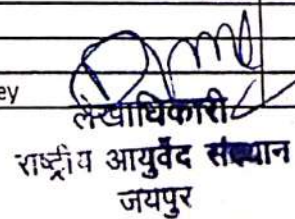 ey
लेखाधिकारी
राष्ट्रीय आयुर्वेद संस्थान
जयपुर